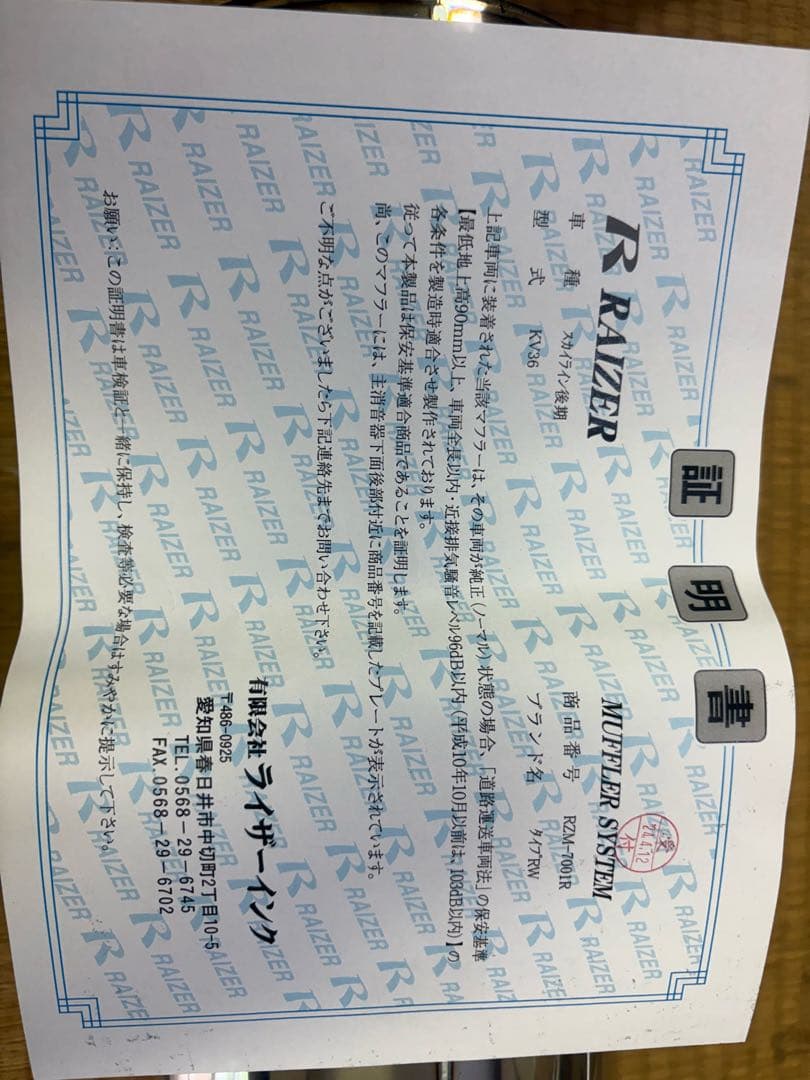 証明書
RAIZER MUFFLER SYSTEM
受付
24.4.12
車種 スカイライン後期 商品番号 RZM-7001R
型式 KV36 ブランド名 タイプRW
上記車両に装着された当該マフラーは、その車両が純正(ノーマル)状態の場合、「道路運送車両法」の保安基準
【最低地上高90mm以上、車両全長以内・近接排気騒音レベル96dB以内(平成10年10月以前は、103dB以内)】の
各条件を製造時適合させ製作されております。
従って本製品は保安基準適合商品であることを証明します。
尚、このマフラーには、主消音器下面後部付近に商品番号を記載したプレートが表示されています。
ご不明な点がございましたら下記連絡先までお問い合わせ下さい。
有限会社 ライザーインク
〒486-0925
愛知県春日井市中切町2丁目10-5
TEL.0568-29-6745
FAX.0568-29-6702
お願い:この証明書は車検証と一緒に保持し、検査等必要な場合はすみやかに提示して下さい。